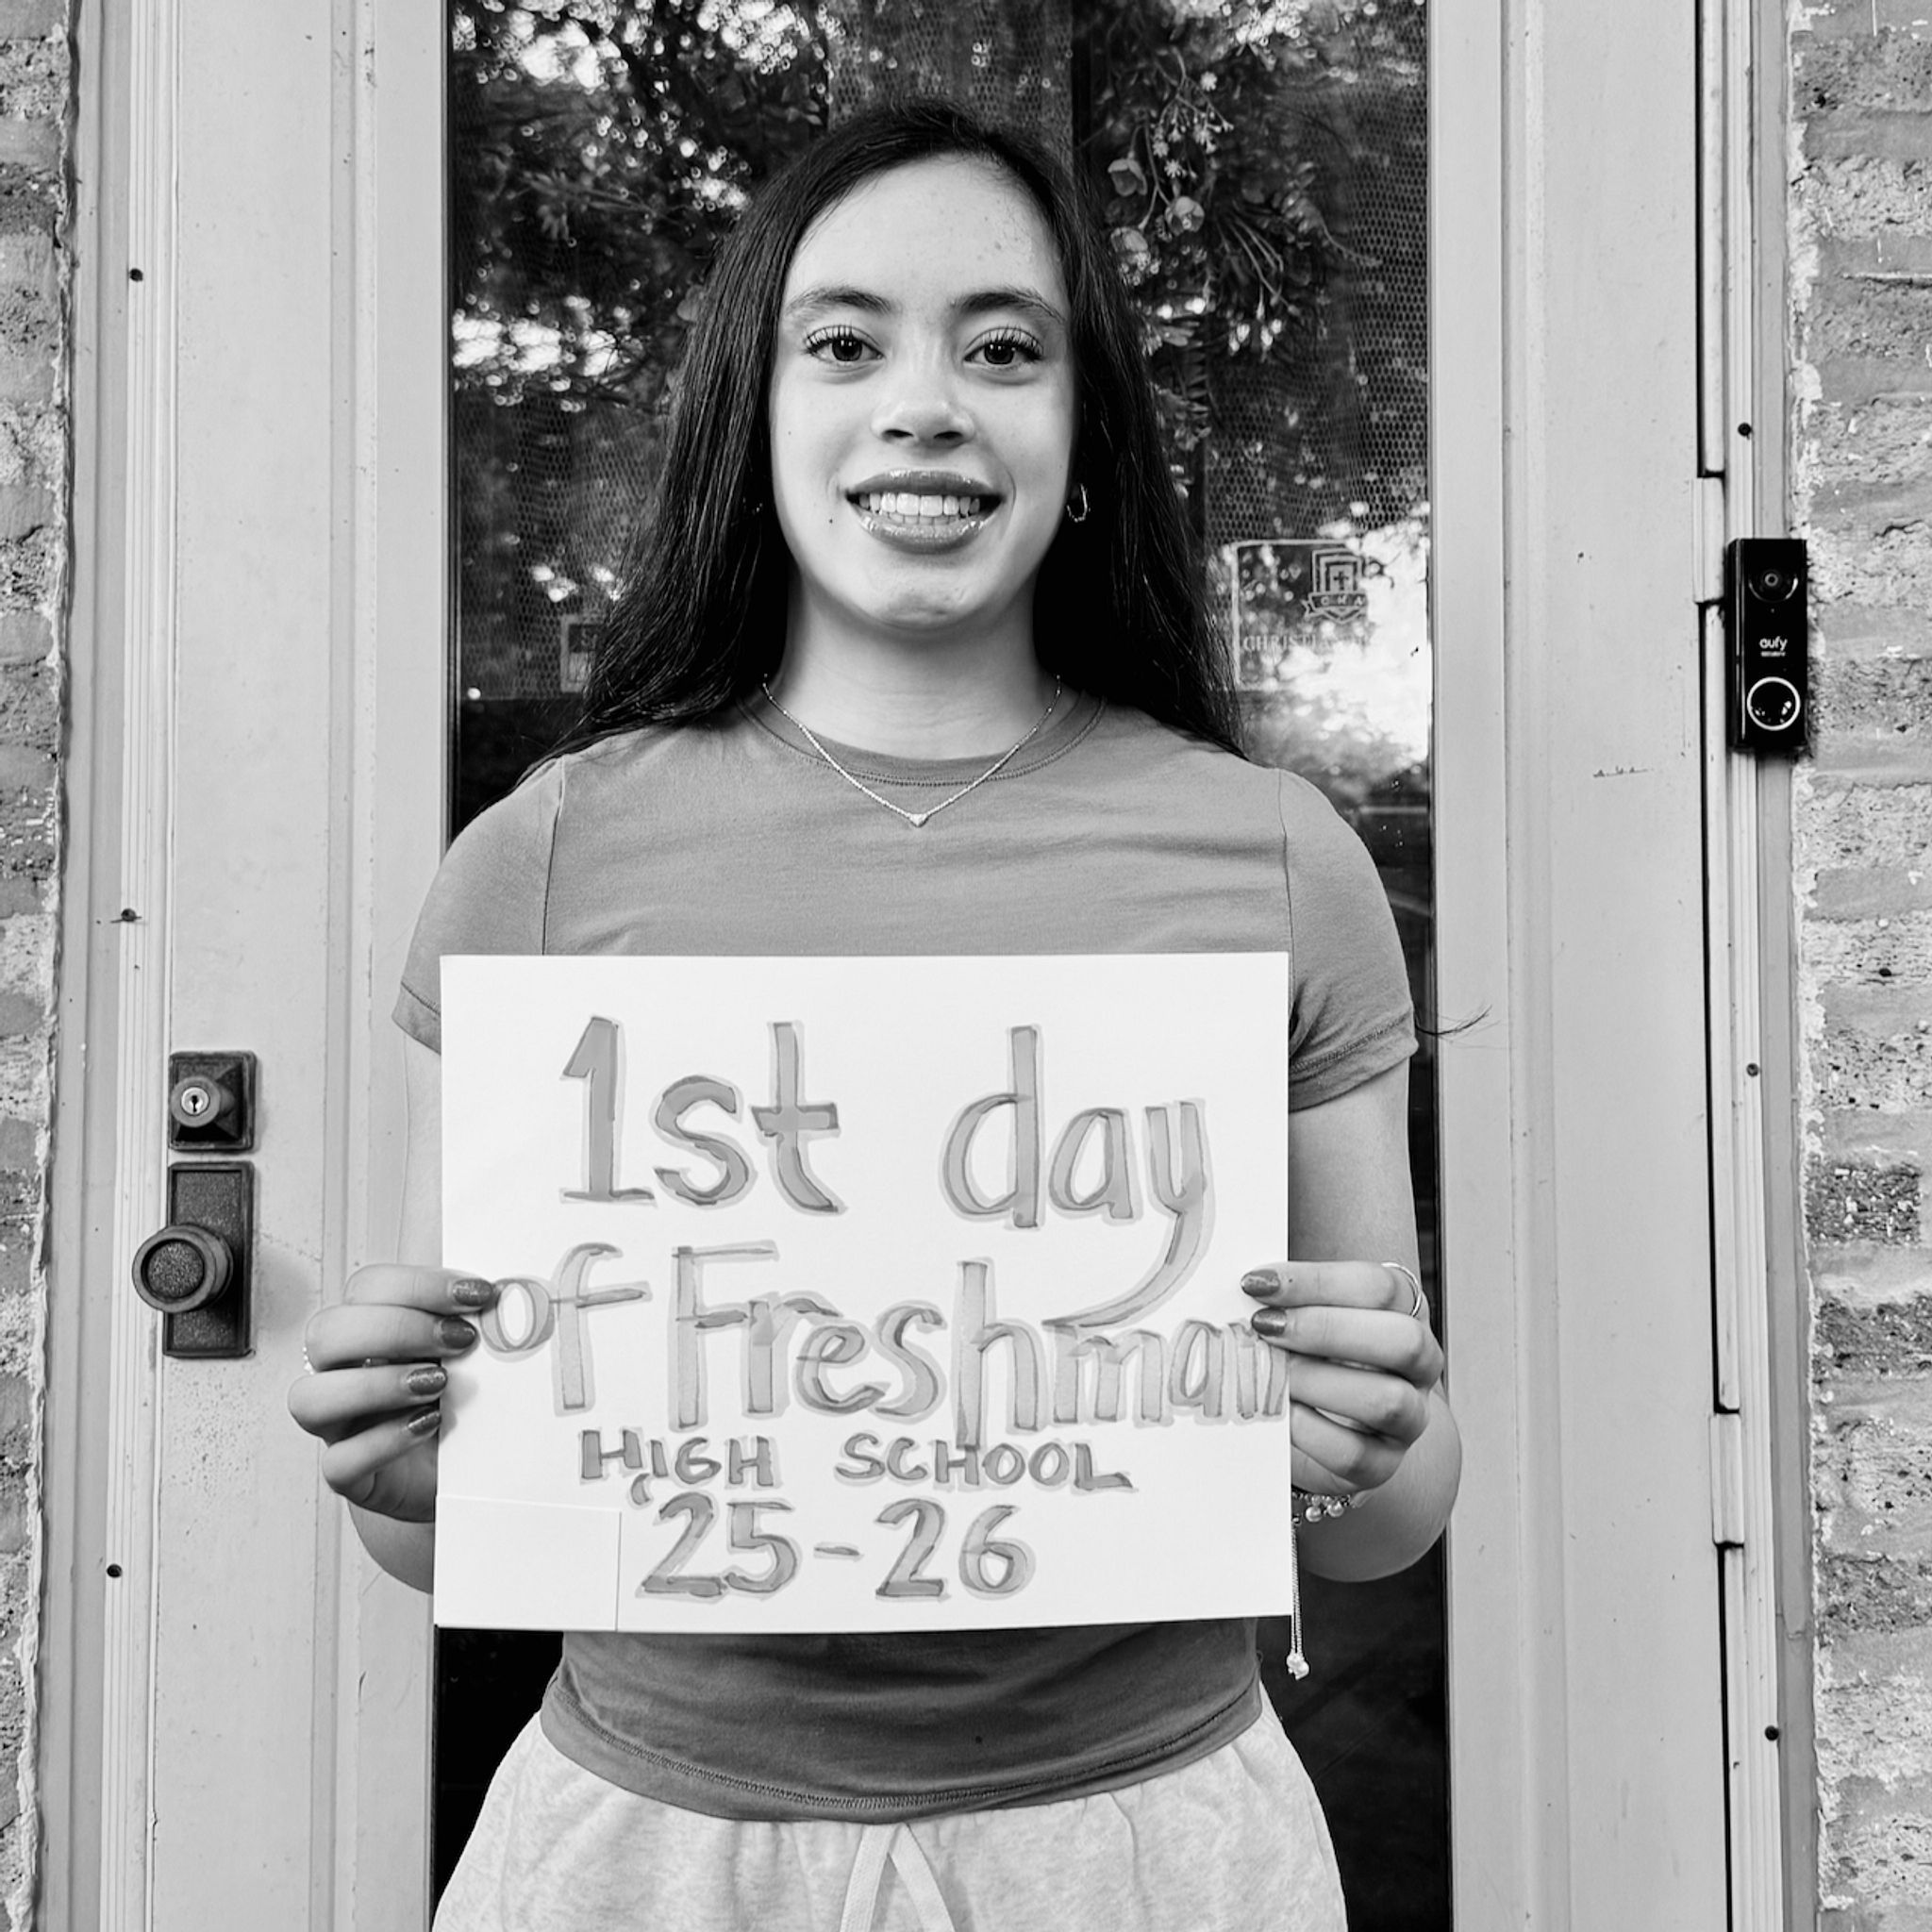 1st day
of Freshman
HIGH SCHOOL
'25-26
CHA
eufy